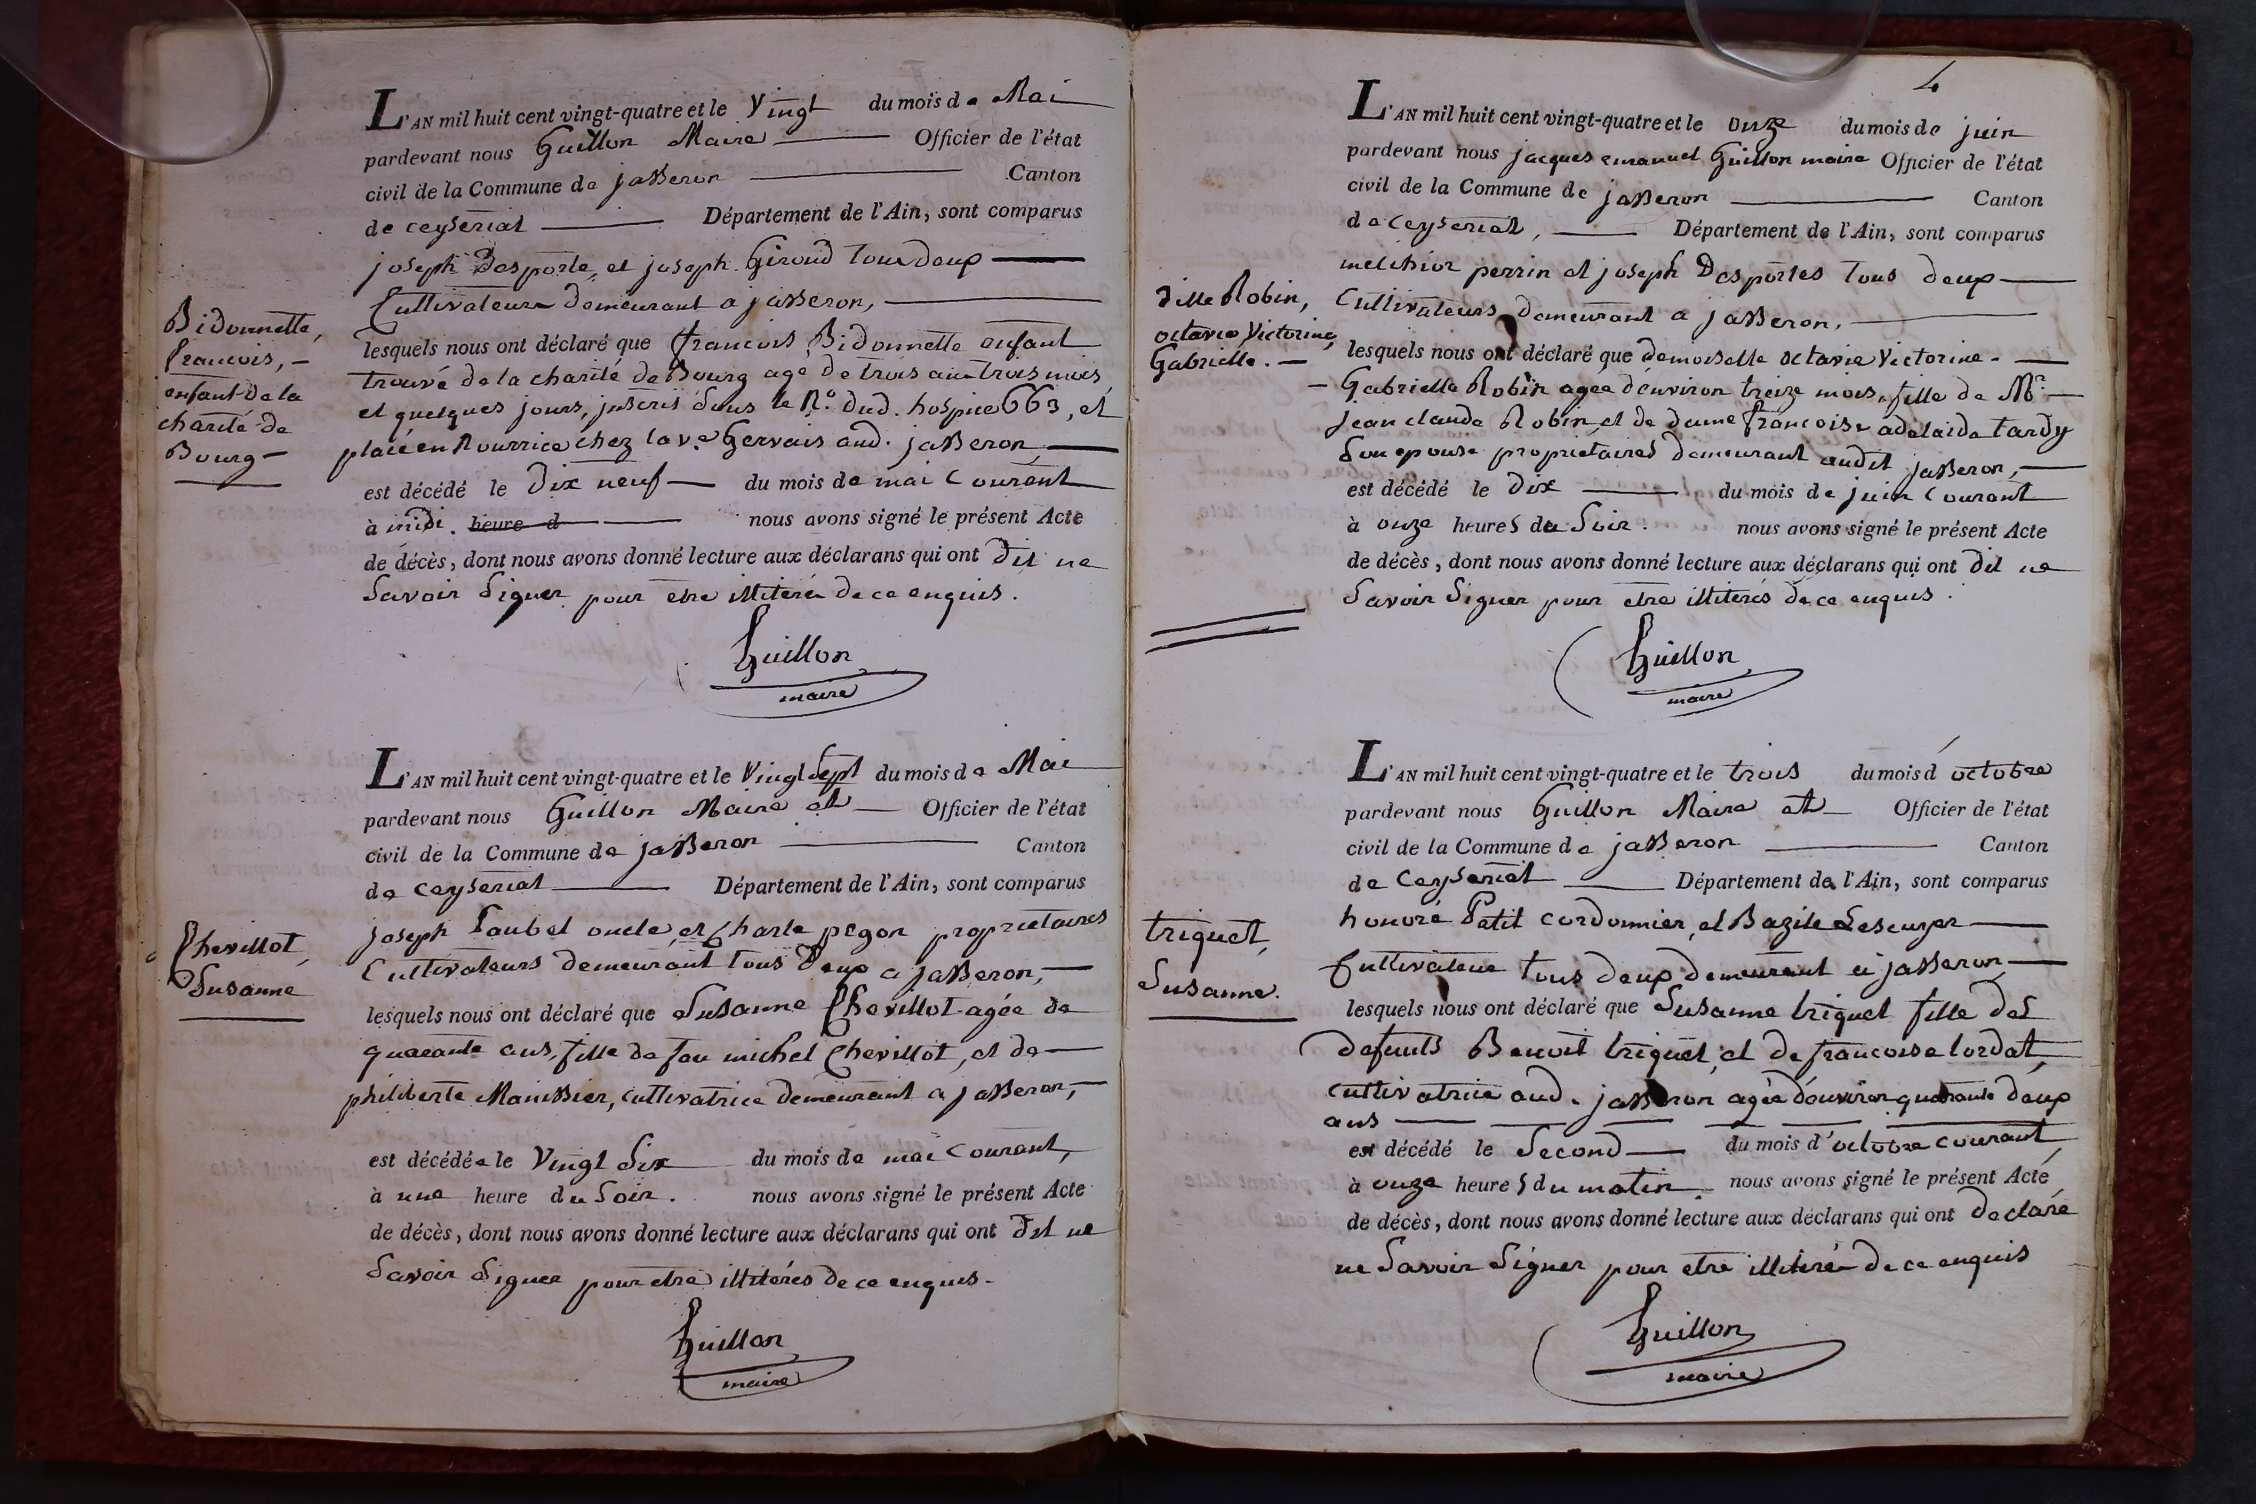 L'AN mil huit cent vingt-quatre et le Vingt du mois de Mai
pardevant nous Guillon Maire Officier de l'état
civil de la Commune de jasseron Canton
de ceyseriat Département de l'Ain, sont comparus
joseph Desporte, et joseph Giroud tous deux
Cultivateurs demeurant a jasseron,
Bidonnette,
francois,
enfant de la
charité de
Bourg
lesquels nous ont déclaré que francois Bidonnette enfant
trouvé de la charité de Bourg agé de trois ans trois mois,
et quelques jours, inscris sous le N.o dud. hospice 663, et
placé en Nourrice chez la v.e Gervais aud. jasseron,
est décédé le Dix neuf du mois de mai Courant
à midi. heure d nous avons signé le présent Acte
de décès, dont nous avons donné lecture aux déclarans qui ont dit ne
Savoir Signer pour etre illiteré de ce enquis.
Guillon
maire
L'AN mil huit cent vingt-quatre et le Vingt Sept du mois de Mai
pardevant nous Guillon Maire et Officier de l'état
civil de la Commune de jasseron Canton
de Ceyseriat Département de l'Ain, sont comparus
Chevillot,
Susanne
joseph Paubel oncle, et Charle pegon proprietaires
Cultivateurs demeurant tous Deux a jasseron,
lesquels nous ont déclaré que Susanne Chevillot agée de
quarante ans, fille de feu michel Chevillot, et de
philiberte Manissier, cultivatrice demeurant a jasseron,
est décédée le Vingt Six du mois de mai Courant,
à une heure du Soir. nous avons signé le présent Acte
de décès, dont nous avons donné lecture aux déclarans qui ont dit ne
Savoir Signer pour etre illiterés de ce enquis.
Guillon
maire
4
L'AN mil huit cent vingt-quatre et le onze du mois de juin
pardevant nous jacques emanuel Guillon maire Officier de l'état
civil de la Commune de jasseron Canton
de Ceyseriat, Département de l'Ain, sont comparus
melchior perrin et joseph Desportes tous deux
Cultivateurs demeurant a jasseron,
dille Robin,
octavie Victorine,
Gabrielle.
lesquels nous ont déclaré que demoiselle octavie Victorine
Gabrielle Robin agée d'environ treize mois, fille de Mr
jean claude Robin, et de dame francoise adelaide tardy
Son epouse proprietaires demeurant audit jasseron,
est décédé le Dix du mois de juin Courant
à onze heures du Soir. nous avons signé le présent Acte
de décès, dont nous avons donné lecture aux déclarans qui ont dit ne
Savoir Signer pour etre illiterés de ce enquis.
Guillon
maire
L'AN mil huit cent vingt-quatre et le trois du mois d'octobre
pardevant nous Guillon Maire et Officier de l'état
civil de la Commune de jasseron Canton
de Ceyseriat Département de l'Ain, sont comparus
triquet,
Susanne.
honoré Petit cordonnier, et Bazile Lescuyer
Cultivateur tous deux demeurant a jasseron,
lesquels nous ont déclaré que Susanne triquet fille des
defunts Benoit triquet, et de francoise tordat,
cultivatrice aud. jasseron agée d'environ quarante deux
ans
est décédé le Second du mois d'octobre courant,
à onze heures du matin nous avons signé le présent Acte
de décès, dont nous avons donné lecture aux déclarans qui ont declaré
ne Savoir Signer pour etre illiteré de ce enquis
Guillon
maire